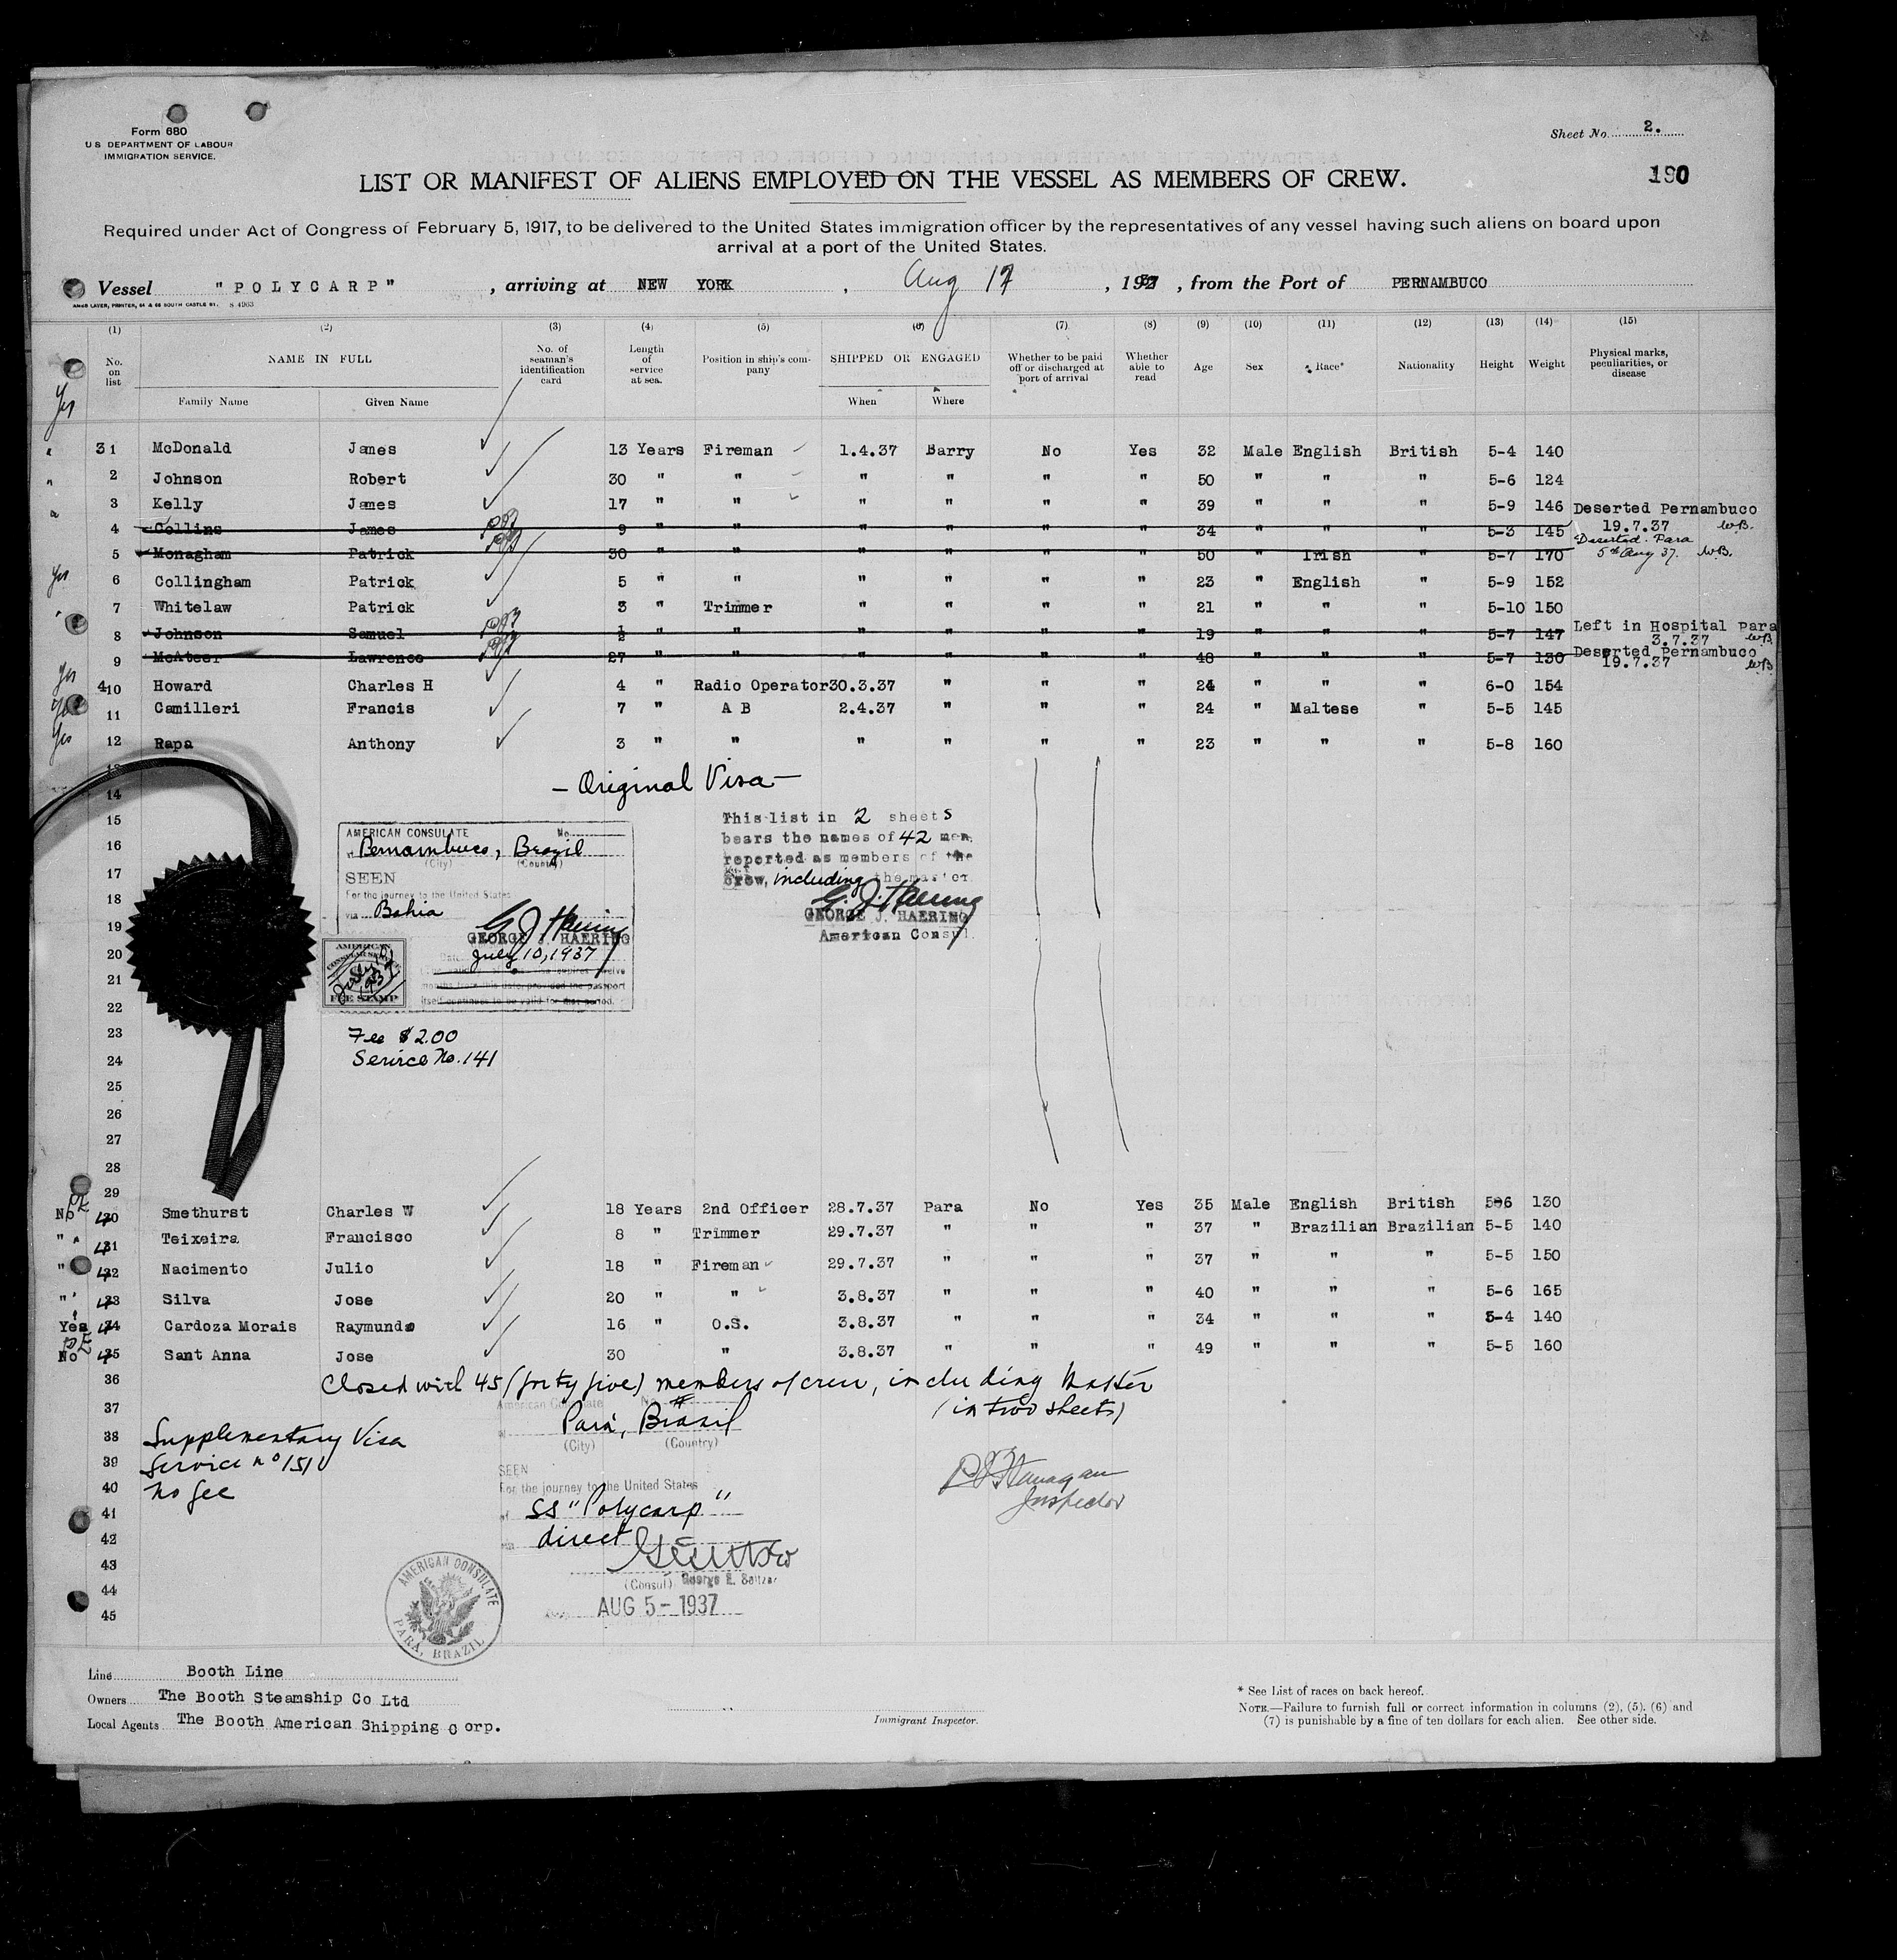 Form 680
U S DEPARTMENT OF LABOUR
IMMIGRATION SERVICE.
Sheet No. 2.
190
LIST OR MANIFEST OF ALIENS EMPLOYED ON THE VESSEL AS MEMBERS OF CREW.
Required under Act of Congress of February 5, 1917, to be delivered to the United States immigration officer by the representatives of any vessel having such aliens on board upon
arrival at a port of the United States.
Vessel "POLYCARP" , arriving at NEW YORK , Aug 12 , 1937 , from the Port of PERNAMBUCO
(1) (2) (3) (4) (5) (6) (7) (8) (9) (10) (11) (12) (13) (14) (15)
No. on list NAME IN FULL No. of seaman's identification card Length of service at sea. Position in ship's company SHIPPED OR ENGAGED Whether to be paid off or discharged at port of arrival Whether able to read Age Sex Race* Nationality Height Weight Physical marks, peculiarities, or disease
Family Name Given Name When Where
Yes
31 McDonald James 13 Years Fireman 1.4.37 Barry No Yes 32 Male English British 5-4 140
" 2 Johnson Robert 30 " " " " " " 50 " " " 5-6 124
3 Kelly James 17 " " " " " " 39 " " " 5-9 146
4 Collins James 9 " " " " " " 34 " " " 5-3 145 Deserted Pernambuco 19.7.37 WB.
5 Monagham Patrick 30 " " " " " " 50 " Irish " 5-7 170 Deserted Para 5th Aug 37. WB.
Yes 6 Collingham Patrick 5 " " " " " " 23 " English " 5-9 152
7 Whitelaw Patrick 3 " Trimmer " " " " 21 " " " 5-10 150
8 Johnson Samuel ½ " " " " " " 19 " " " 5-7 147 Left in Hospital Para 3.7.37 WB
9 McAteer Lawrence 27 " " " " " " 48 " " " 5-7 130 Deserted Pernambuco 19.7.37 WB
Yes 410 Howard Charles H 4 " Radio Operator 30.3.37 " " " 24 " " " 6-0 154
Yes 11 Camilleri Francis 7 " A B 2.4.37 " " " 24 " Maltese " 5-5 145
Yes 12 Rapa Anthony 3 " " " " " " 23 " " " 5-8 160
13
14 - Original Visa -
15
16
17
18
19
20
21
22
23
24
25
26
27
28
29
AMERICAN CONSULATE No.
at Pernambuco, Brazil
(City) (Country)
SEEN
For the journey to the United States
via Bahia
G J Haering
GEORGE J. HAERING
Date July 10, 1937
months from this date, provided the passport
itself continues to be valid for that period.
AMERICAN
CONSULAR SERVICE
July 10
1937
FEE STAMP
Fee $2.00
Service No. 141
This list in 2 sheets
bears the names of 42 men
reported as members of the
crew, including the master
G. J. Haering
GEORGE J. HAERING
American Consul.
No 40 30 Smethurst Charles W 18 Years 2nd Officer 28.7.37 Para No Yes 35 Male English British 5-6 130
" 41 31 Teixeira Francisco 8 " Trimmer 29.7.37 " " " 37 " Brazilian Brazilian 5-5 140
" 42 32 Nacimento Julio 18 " Fireman 29.7.37 " " " 37 " " " 5-5 150
" 43 33 Silva Jose 20 " " 3.8.37 " " " 40 " " " 5-6 165
Yes 44 34 Cardoza Morais Raymundo 16 " O.S. 3.8.37 " " " 34 " " " 5-4 140
No 45 35 Sant Anna Jose 30 " 3.8.37 " " " 49 " " " 5-5 160
36 Closed with 45 (forty five) members of crew, including Master
(in two sheets)
37
38
39
40
41
42
43
44
45
Supplementary Visa
Service no 151
no fee
American Consulate
at Pará, Brasil
(City) (Country)
SEEN
For the journey to the United States
of SS "Polycarp"
via direct
(Consul) George E. Seltzer
AUG 5 - 1937
AMERICAN CONSULATE
PARÁ, BRAZIL
Flanagan
Inspector
Line Booth Line
Owners The Booth Steamship Co Ltd
Local Agents The Booth American Shipping Corp.
Immigrant Inspector.
* See List of races on back hereof.
NOTE.—Failure to furnish full or correct information in columns (2), (5), (6) and
(7) is punishable by a fine of ten dollars for each alien. See other side.